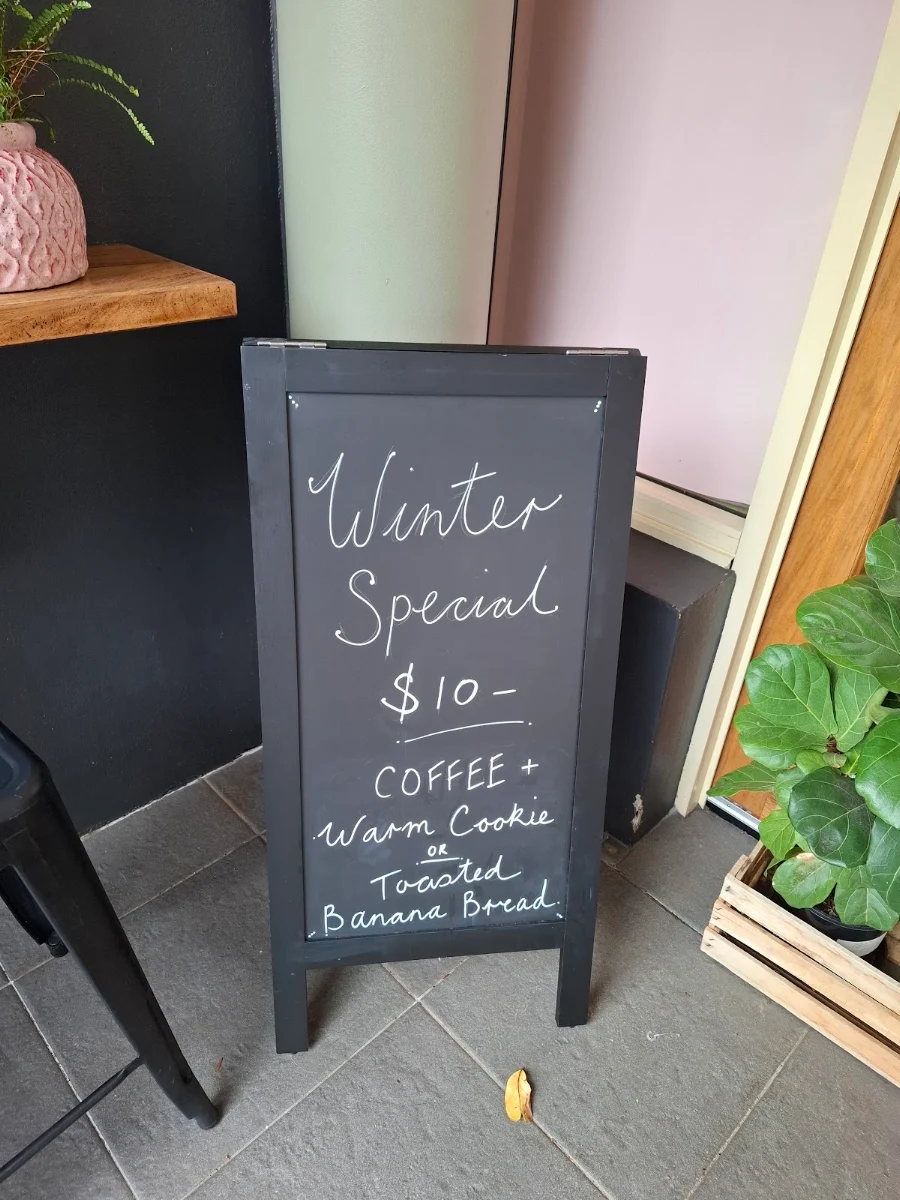 Winter
Special
$10-
COFFEE +
Warm Cookie
OR
Toasted
Banana Bread.